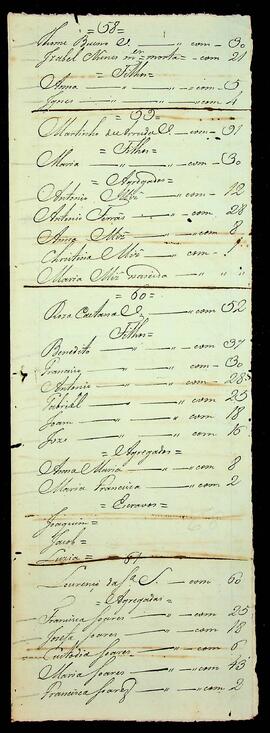 =58=
Thome Bueno C. — " — com — 30
Izabel Nunes m.er morta — com — 21
= Filhos =
Anna — " — " — com — 5
Ignes — " — " — com — 4
=59=
Martinho de Arruda C. — " — com — 31
= Filhos =
Maria — " — " — com — 30
= Agregados =
Antonio Miz — " — com — 12
Antonio Ferras — " — com — 28
Miz — " — com — 8
Christina Miz — " — com —
Maria Miz — " "
=60=
Roza Caetana — " — com — 52
Filhos =
Benedito — " — " — com — 37
— " — " — com — 30
Antonio — " — " — com — 28
Gabriel — " — " — com — 25
Joam — " — " — com — 18
Joze — " — " — com — 16
= Agregados =
Anna Maria — " — com — 8
Maria Francisca — " — com — 2
= Escravos =
Joaquim =
Jacob =
Luzia =
=61=
Lourenço da S.a S. — com — 60
= Agregadas =
Francisca Soares — " — com — 25
Josefa Soares — " — com — 18
Custodia Soares — " — com — 6
Maria Soares — " — com — 43
Francisca Soares — " — com — 2